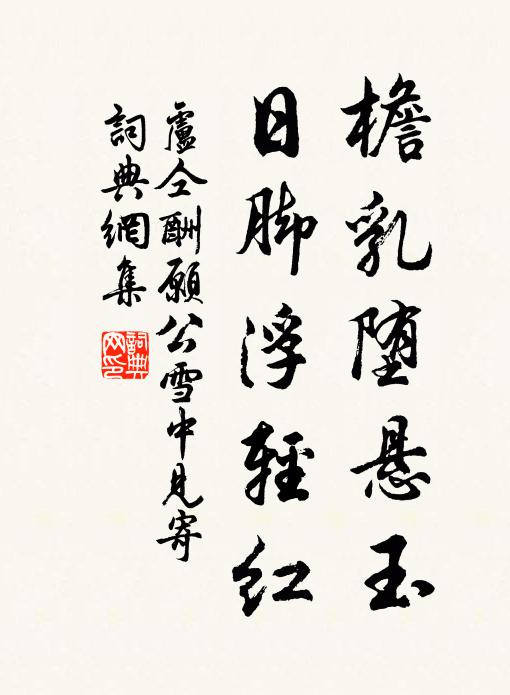 檐乳堕悬玉
日脚浮輕红
盧仝酬願公雪中見寄
詞典網集
詞典网印